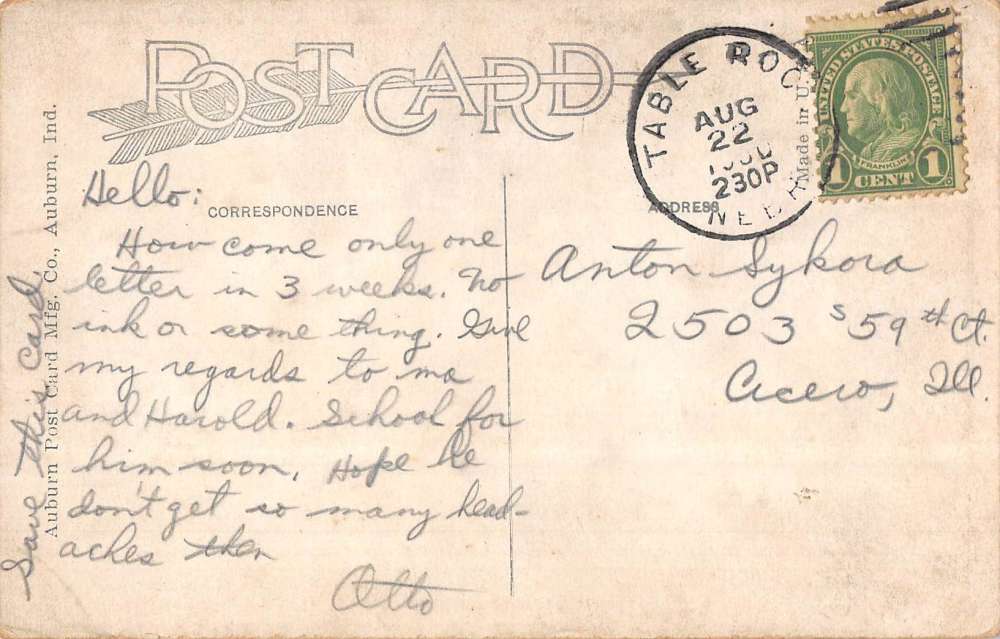 POST CARD
TABLE ROC
AUG
22
230P
NEBR
UNITED STATES POSTAGE
FRANKLIN
1 CENT 1
Made in U.S.
Auburn Post Card Mfg. Co., Auburn, Ind.
CORRESPONDENCE
ADDRESS
Hello:
How come only one
letter in 3 weeks. No
ink or some thing. Give
my regards to ma
and Harold. School for
him soon. Hope he
don't get so many head-
aches then
Otto
Save this card
Anton Sykora
2503 S 59th Ct.
Cicero, Ill.